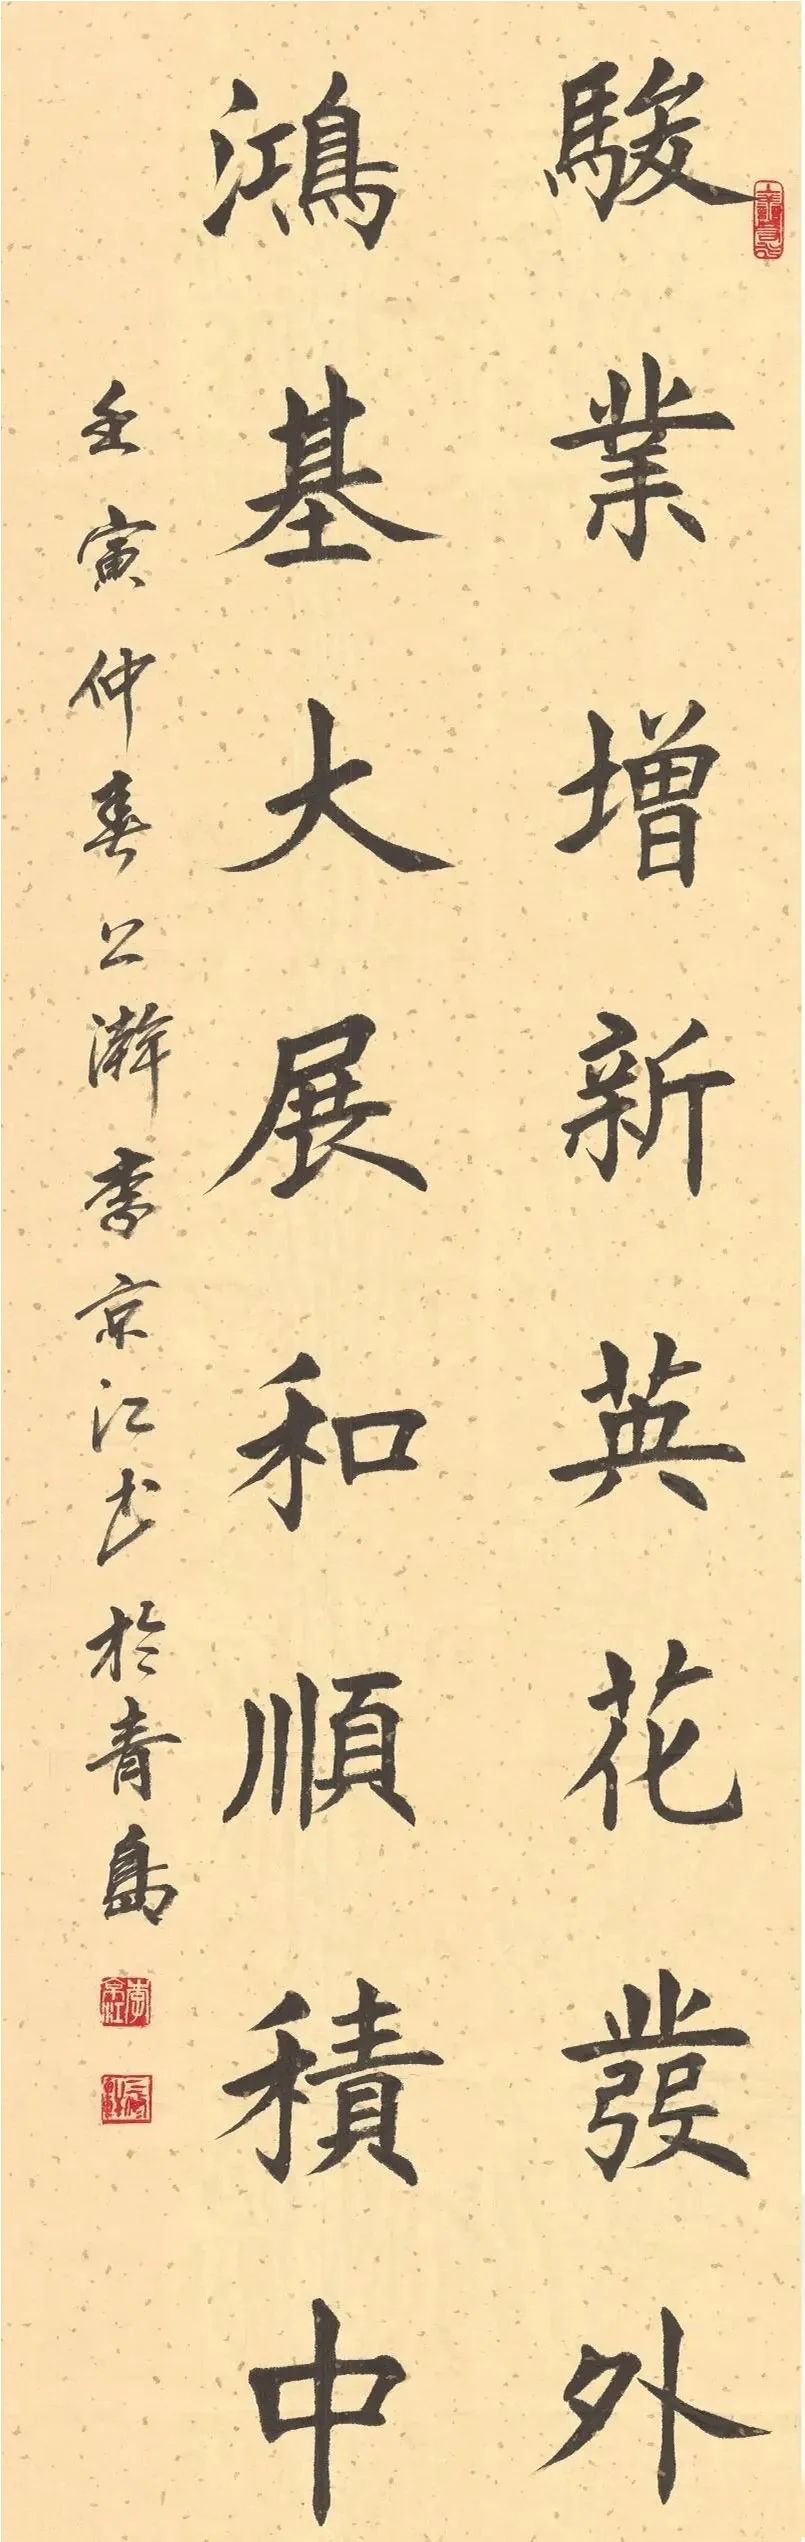 駿業增新英花發外
鴻基大展和順積中
壬寅仲春之瀚李京江书於青島
李京江